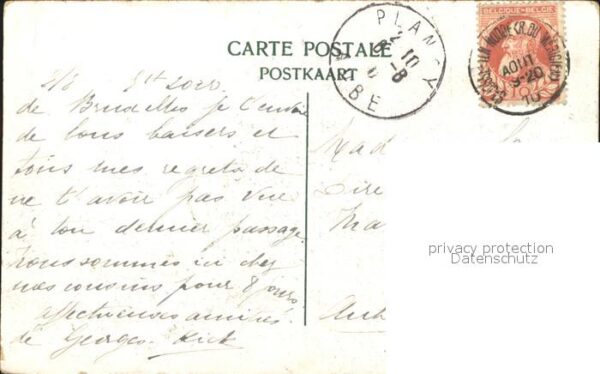 CARTE POSTALE
POSTKAART
PLANCY
2 10
8-8
AUBE
BELGIQUE-BELGIË
AOUT
9-20
10
2/8
de Bruxelles je t'envoie
de bons baisers et
tous mes regrets de
ne t'avoir pas vue
à ton dernier passage
nous sommes ici chez
nos cousins pour 8 jours
affectueuses amitiés
de Georges.
Mad
Dire
Ma
Aub
privacy protection
Datenschutz